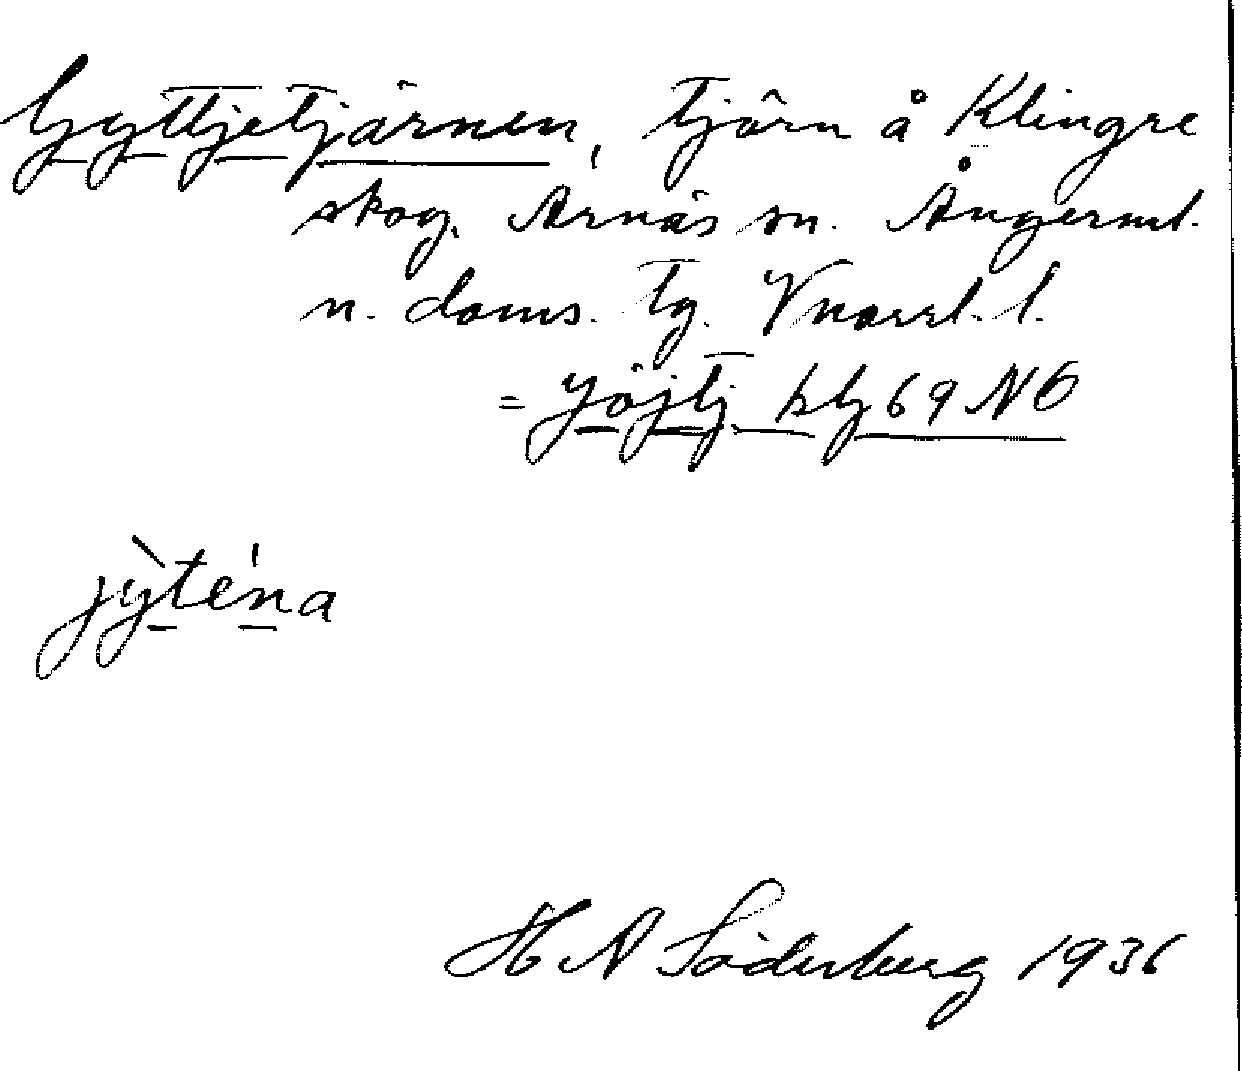 Gyttjetjärnen, tjärn å Klingre
skog, Arnäs sn. Ångerml.
n. doms. tg. Vnorrl. l.
= Yöjtj blg 69 NO
jỳténa
H N Söderberg 1936